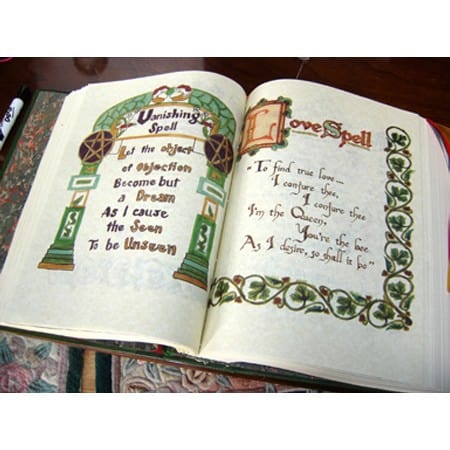 Vanishing
Spell
Let the object
of Objection
Become but
a Dream
As I cause
the Seen
To be Unseen
Love Spell
"To find true love...
I conjure thee,
I conjure thee
I'm the Queen,
You're the bee
As I desire, so shall it be"